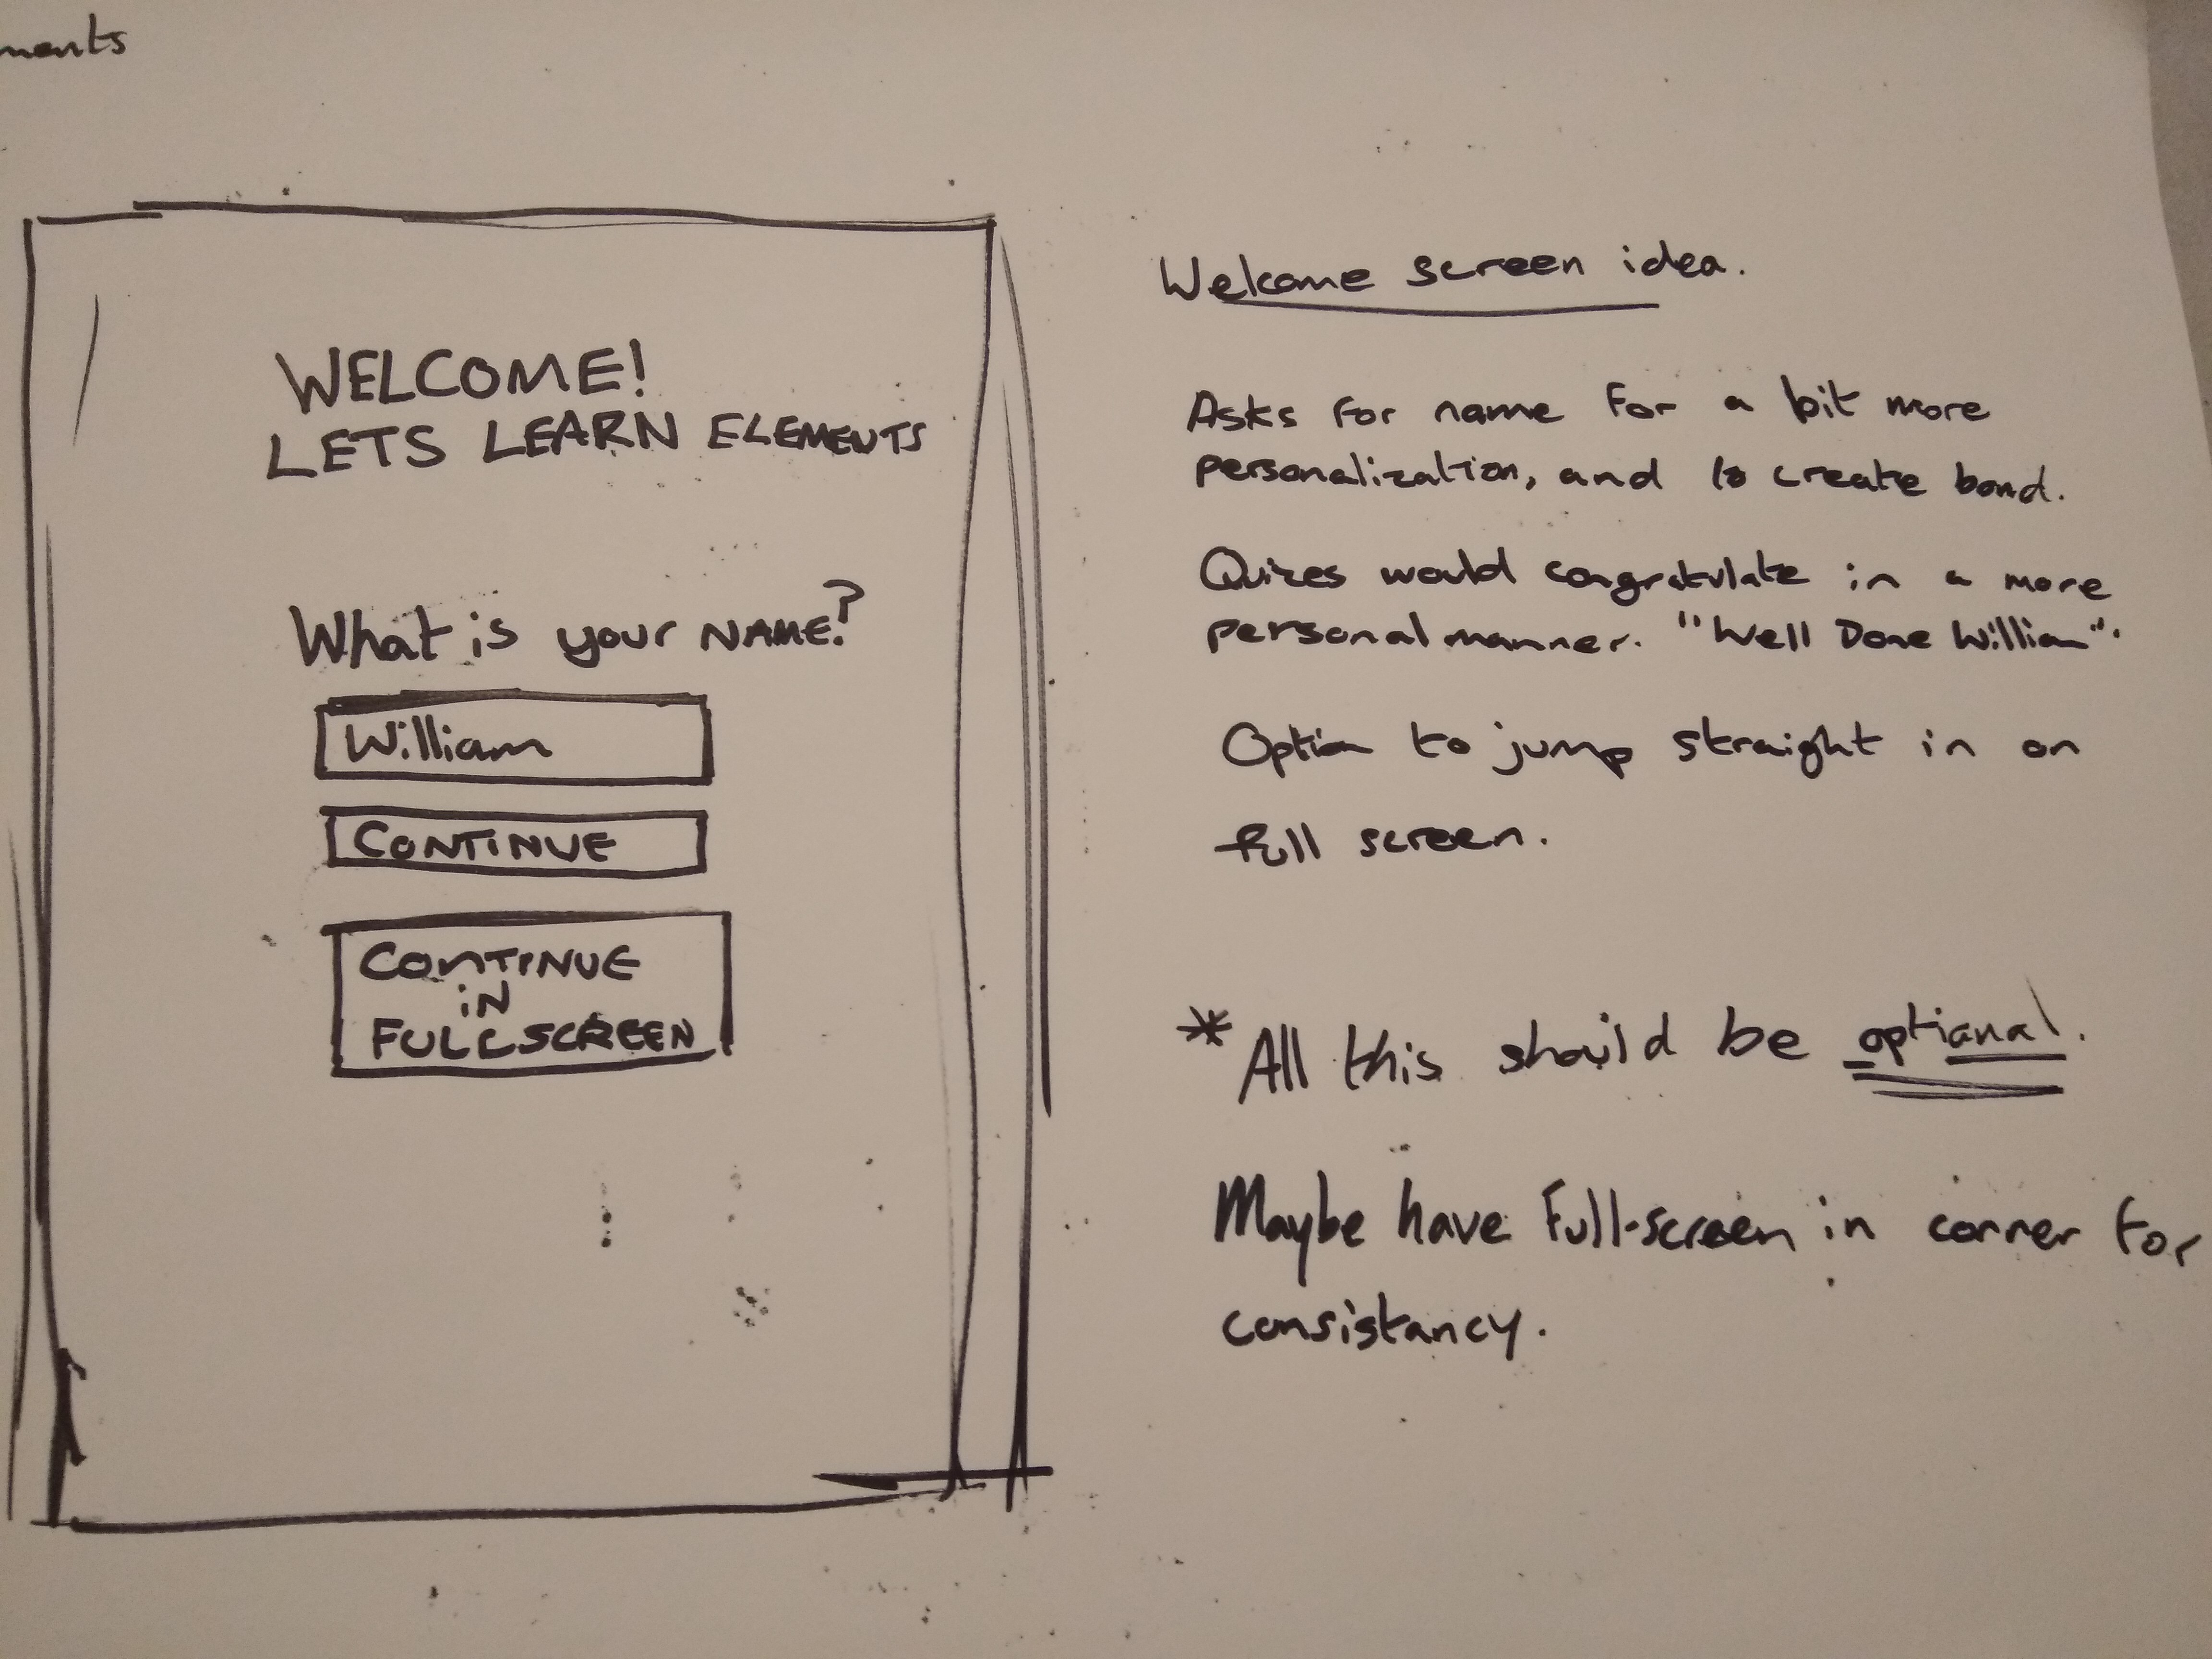 ments
WELCOME!
LETS LEARN ELEMENTS
What is your NAME?
William
CONTINUE
CONTINUE
iN
FULLSCREEN
Welcome screen idea.
Asks for name for a bit more
personalization, and to create bond.
Quizes would congratulate in a more
personal manner. "Well Done William".
Option to jump straight in on
full screen.
*All this should be optianal.
Maybe have Full-screen in corner for
consistancy.